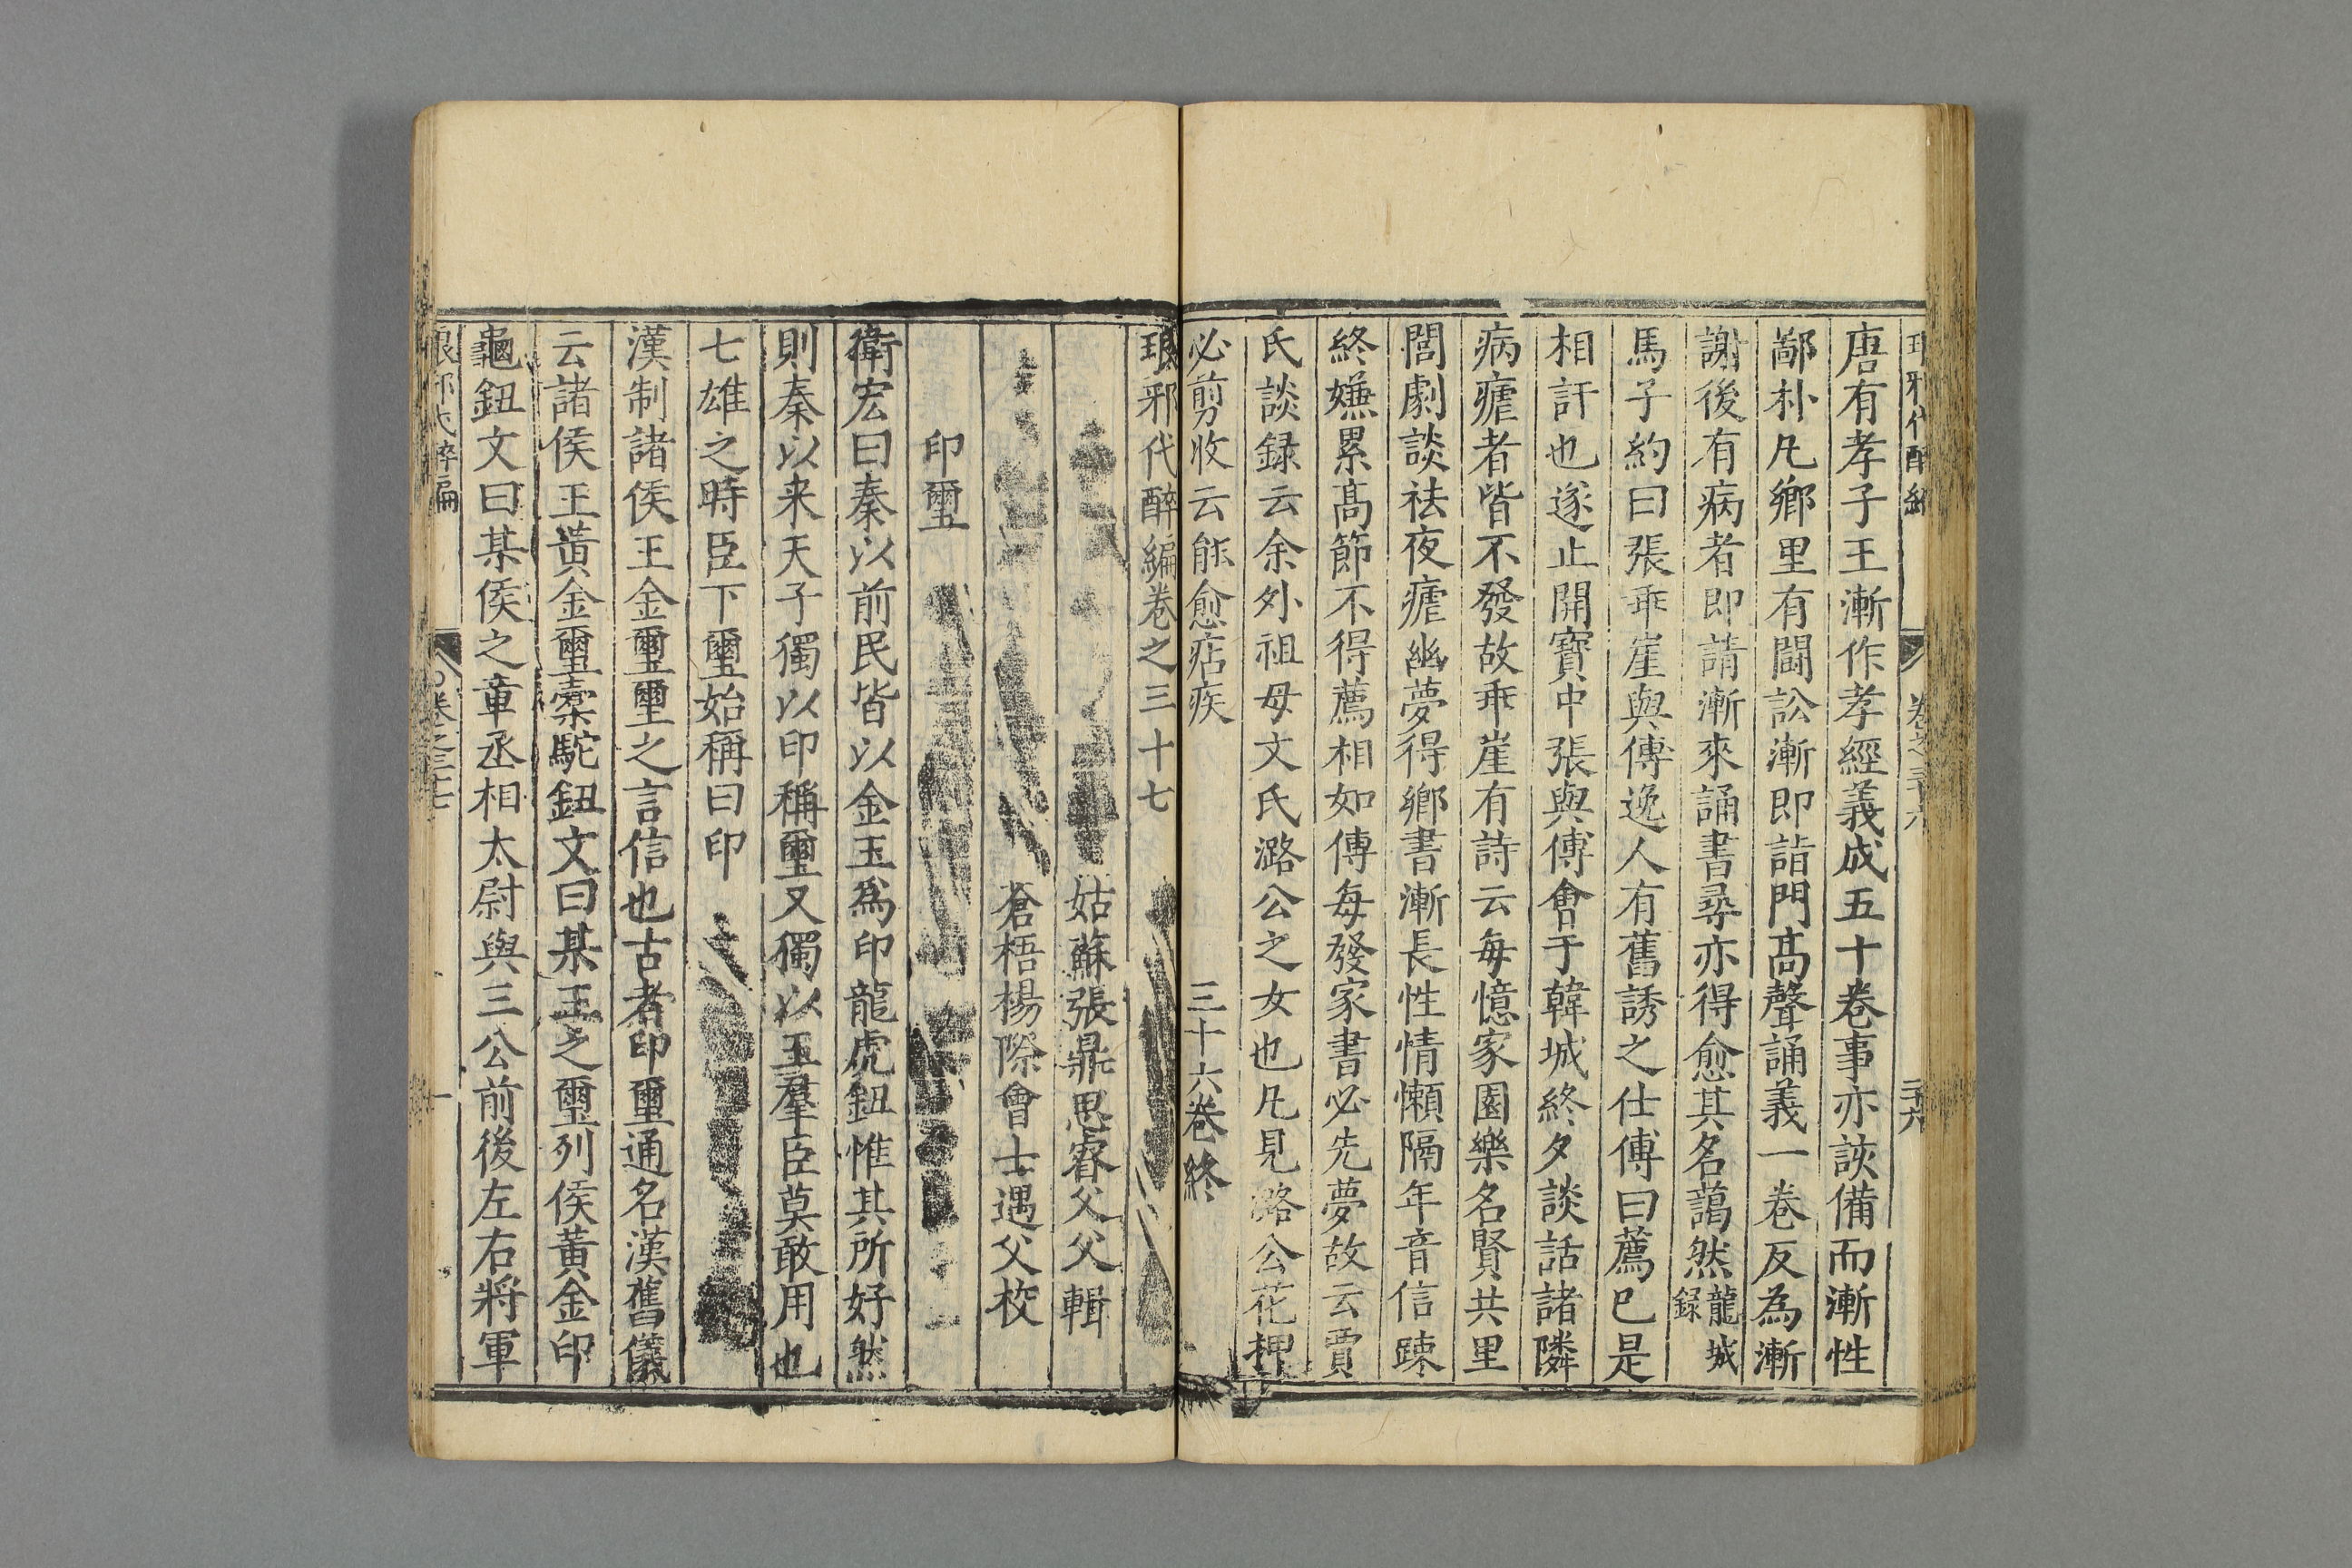 唐有孝子王漸作孝經義成五十卷事亦該備而漸性
鄙朴凡鄉里有鬪訟漸即詣門高聲誦義一卷反為漸
謝後有病者即請漸來誦書尋亦得愈其名藹然龍城錄
馬子約曰張乖崖與傅逸人有舊誘之仕傅曰薦已是
相訐也遂止開寶中張與傅會于韓城終夕談話諸隣
病瘧者皆不發故乖崖有詩云每憶家園樂名賢共里
閭劇談袪夜瘧幽夢得鄉書漸長性情懶隔年音信踈
終嫌累高節不得薦相如傅每發家書必先夢故云賈
氏談録云余外祖母文氏潞公之女也凡見潞公花押
必剪收云能愈痁疾
三十六卷終
琅邪代醉編卷之三十七
姑蘇張鼎思睿父父輯
蒼梧楊際會士遇父校
印璽
衛宏曰秦以前民皆以金玉爲印龍虎鈕惟其所好然
則秦以来天子獨以印稱璽又獨以玉羣臣莫敢用也
七雄之時臣下璽始稱曰印
漢制諸侯王金璽璽之言信也古者印璽通名漢舊儀
云諸侯王黃金璽橐駝鈕文曰某王之璽列侯黃金印
龜鈕文曰某侯之章丞相太尉與三公前後左右將軍